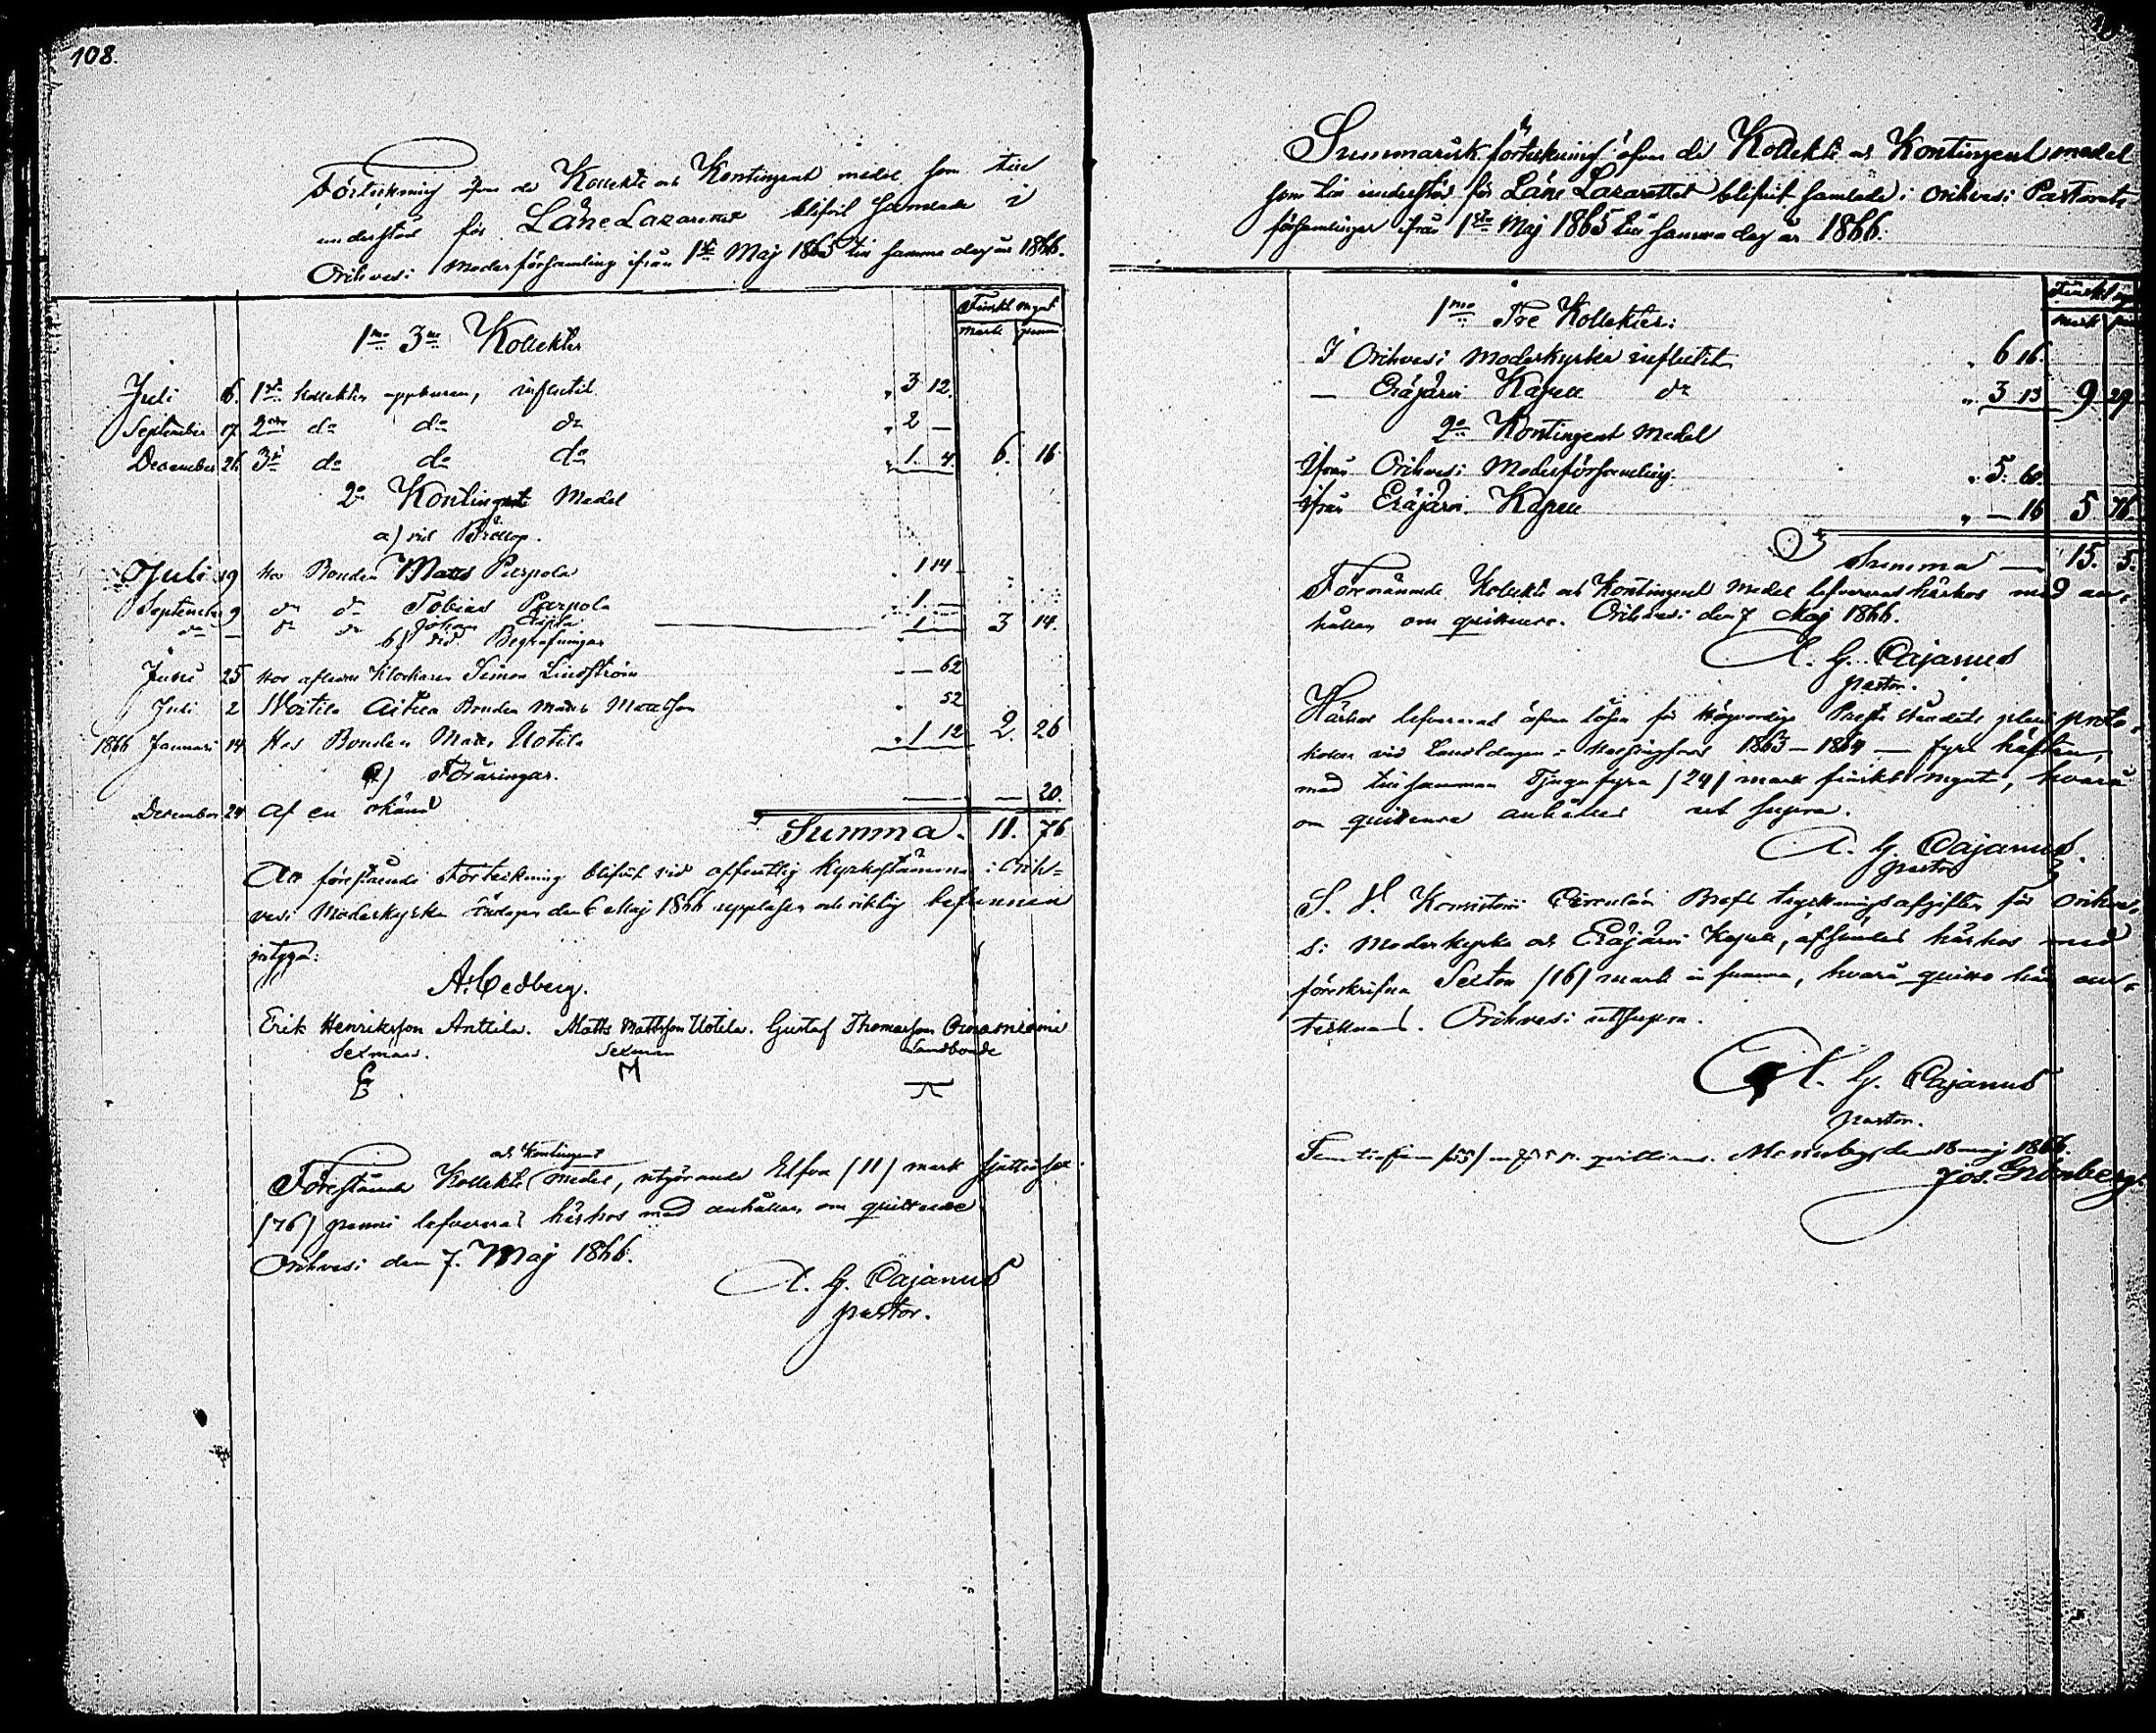 108.
Förteckning öfver de Kollekte och Kontingent medel som till
understöd för Läne Lazarettet blifvit samlade i
Orihvesi Moderförsamling ifrån 1sta Maj 1865 till samma dag år 1866.
Finskt mynt
mark penni
1mo 3ne Kollekter
Juli 6. 1sta kollekten uppburen, influtit " 3 12.
September 17. 2dra do do do " 2 —
December 26. 3je do do do " 1. 4. 6. 16.
2o Kontingent Medel
a) vid Bröllop.
Juli 19 hos Bonden Matts Parpola " 1 14
September 9 do do Tobias Parpola " 1. —
do — do do Johan " 1 — 3 14.
b) vid Begrafningar
Juni 25 hos aflidne Klockaren Simon Lindström — 62
Juli 2 Bonden Matts Mattsson " 52
1866 Januari 14. Hos Bonden Matts Uotila " 1 12 2. 26
c) Föräringar.
December 24 Af en okänd — — 20.
Summa. 11. 76
Att förestående Förteckning blifvit vid offentlig Kyrkostämma i Orih-
vesi Moderkyrka Söndagen den 6 Maj 1866 uppläsen och riktig befunnen
intyga:
A. Cedberg.
Erik Henriksson Anttila. Matts Mattsson Uotila. Gustaf Thomasson Onnaniemi
Sexman. Sexman Landbonde
M
och Kontingent
Förestående Kollekte medel, utgörande Elfva (11) mark sjuttiosex
(76) penni lefvereras härhos med anhållan om quittence
Orihvesi den 7. Maj 1866.
A. G. Cajanus
pastor.
Summarisk förteckning öfver de Kollekte och Kontingent medel
som till understöd för Läne Lazarettet blifvit samlade i Orihvesi Pastorats
församlingar ifrån 1sta Maj 1865 till samma dag år 1866.
Finskt
mark
1mo Tre Kollekter:
I Orihvesi Moderkyrka influtit " 6 16.
— Eräjärvi Kapell do " 3 13 9 29
2o Kontingent Medel
ifrån Orihvesi Moderförsamling. " 5. 60.
ifrån Eräjärvi Kapell " — 16 5. 76.
Summa — 15. 5.
Förenämnde Kollekte och Kontingent medel lefvereras härhos med an-
hållan om quittence. Orihvesi den 7 Maj 1866.
A. G. Cajanus
pastor.
Härhos lefvereras äfven lösen för Högvördiga Preste Ståndets plena proto-
koller vid Landtdagen i Helsingfors 1863–1864 — fyra häften,
med tillsamman Tjugufyra (24) mark finskt mynt, hvarå
om quittence anhålles ut supra.
A. G. Cajanus.
pastor
S. V. Konsistorii Circulär Brefs tryckningsafgifter för Orihve-
si Moderkyrka och Eräjärvi Kapell, afsändes härhos med
föreskrifna Sexton (16) mark in summa, hvarå quitto här an-
tecknas. Orihvesi ut supra.
A. G. Cajanus
pastor.
quitteras. den 18 maj 1866.
Jos. Grönberg.